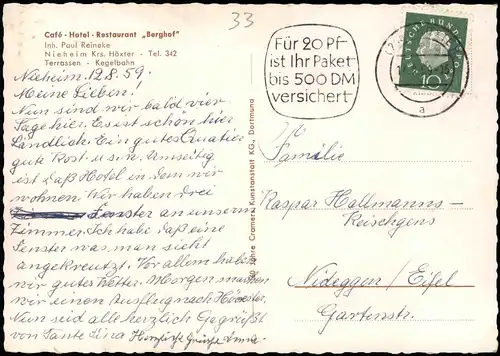 33
Café - Hotel - Restaurant „Berghof"
Inh. Paul Reineke
Nieheim Krs. Höxter - Tel. 342
Terrassen - Kegelbahn
Nieheim, 12.8.59.
Meine Lieben!
Nun sind wir bald vier
Tage hier. Es ist schön hier
Ländlich. Ein gutes Quatier
gute Kost u.s.w. Umseitig
ist daß Hotel in dem wir
wohnen. Wir haben drei
Fenster an unserm
Zimmer. Ich habe daß eine
Fenster was man sieht
angekreuzt. Vor allem haben
wir gutes Wetter. Morgen machen
wir einen Ausflug nach Höxter.
Nun seid alle herzlich Gegrüßt
von Tante Lina Herzliche Grüsse Anna.
Jahre Cramers Kunstanstalt KG., Dortmund
Für 20 Pf
ist Ihr Paket
bis 500 DM
versichert
DEUTSCHE BUNDESPOST
10
a
Familie
Kaspar Hallmanns-
Reischgens
Nideggen/Eifel
Gartenstr.